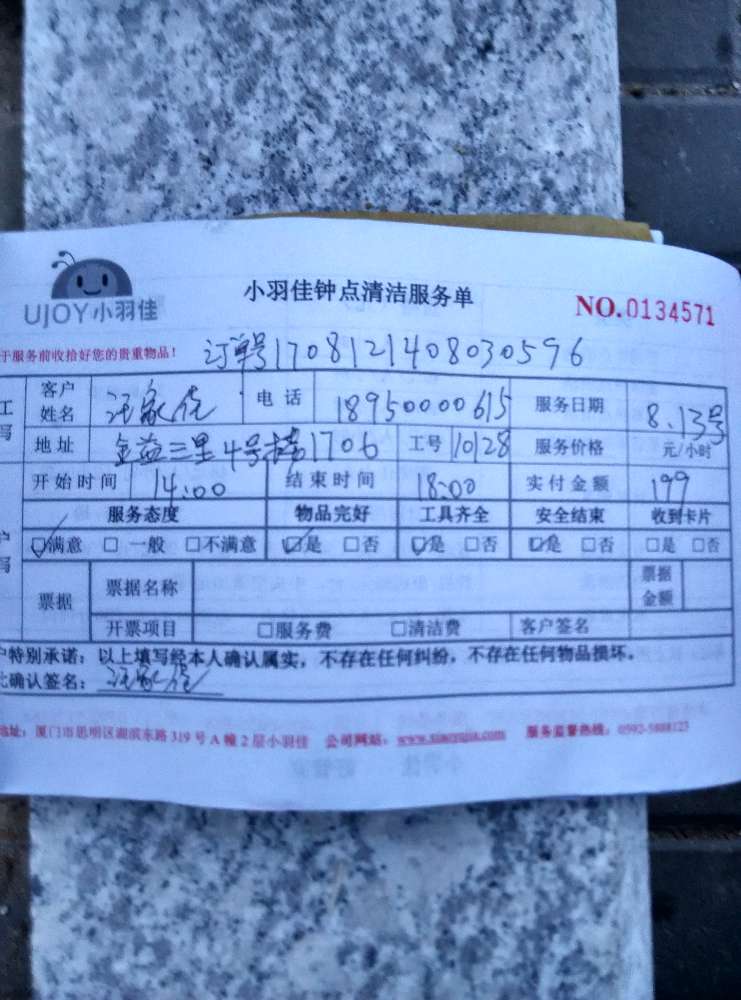 UJOY小羽佳
小羽佳钟点清洁服务单
NO.0134571
于服务前收拾好您的贵重物品!
订单号170812140803059 6
工 客户姓名 汪家佳 电话 18950000615 服务日期 8.13号
写 地址 金益三里4号楼1706 工号 10128 服务价格 元/小时
开始时间 14:00 结束时间 18:00 实付金额 199
服务态度 物品完好 工具齐全 安全结束 收到卡片
户 ☑满意 □一般 □不满意 ☑是 □否 ☑是 □否 ☑是 □否 □是 □否
写 票据 票据名称 票据金额
开票项目 □服务费 □清洁费 客户签名
户特别承诺：以上填写经本人确认属实，不存在任何纠纷，不存在任何物品损坏。
此确认签名：汪家佳
地址：厦门市思明区湖滨东路319号A幢2层小羽佳 公司网站： 服务监督热线：0592-5888123